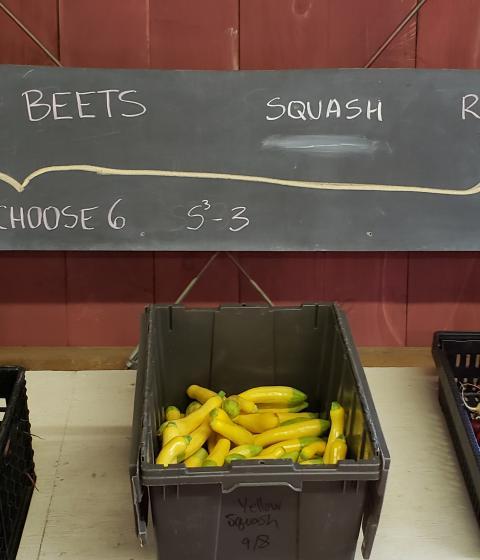 BEETS
SQUASH
R
CHOOSE 6
S³-3
Yellow
Squash
9/8